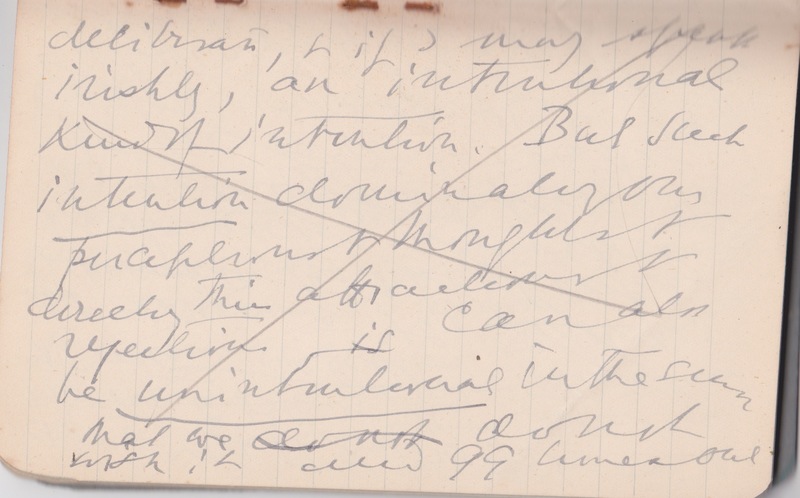 deliberate, & if I may speak
irishly, an intentional
kind of intention. But such
intention dominating our
perceptions & thoughts &
directing their attractions &
rejections is can also
be unintentional in the sense
that we do not do not
wish it and 99 times out